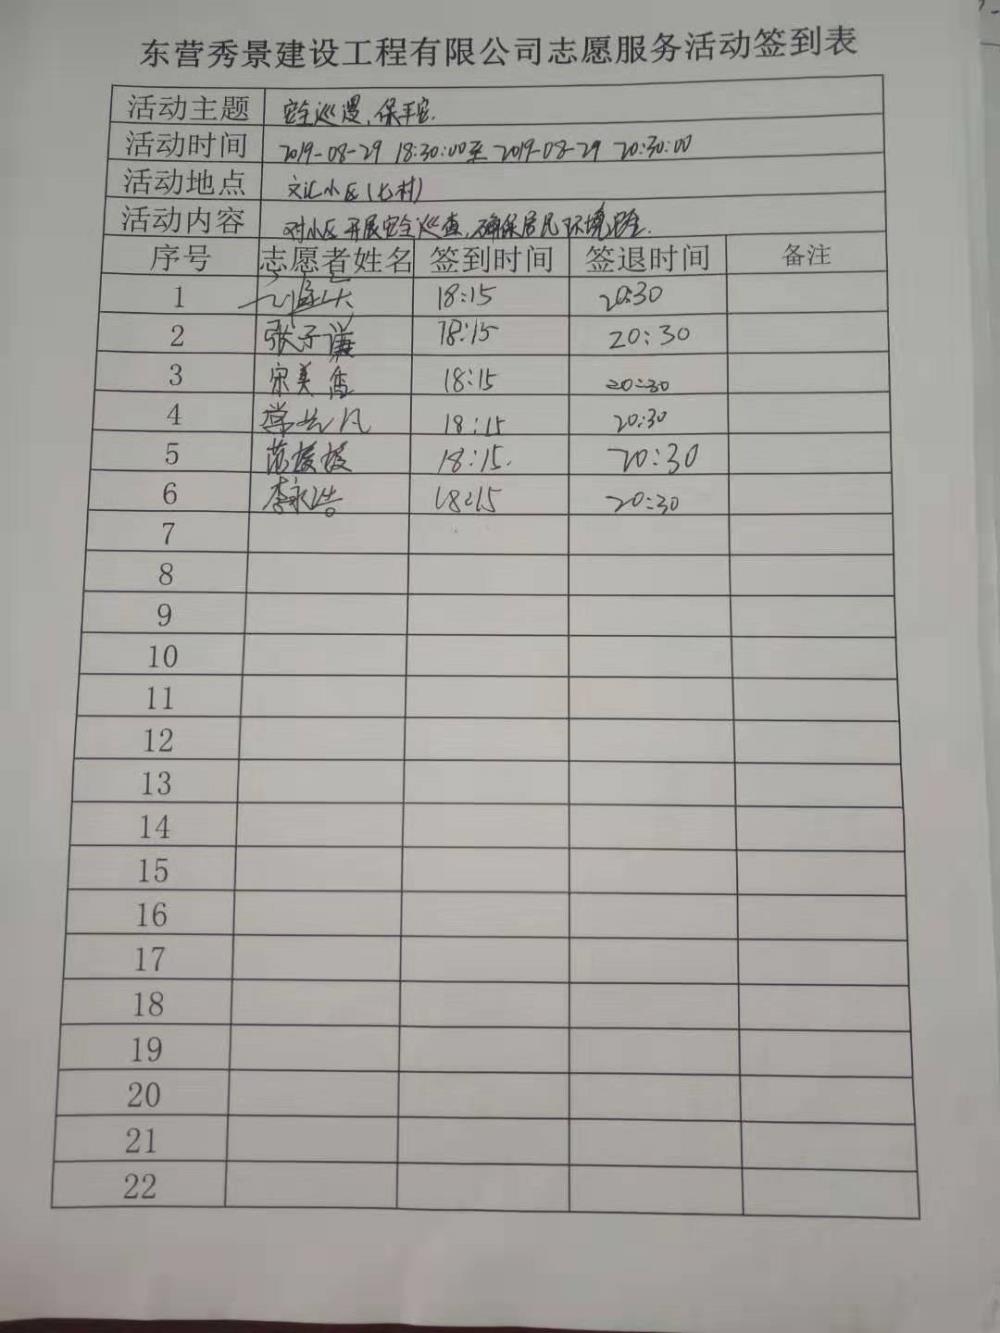 东营秀景建设工程有限公司志愿服务活动签到表
活动主题 安全巡逻,保平安.
活动时间 2019-08-29 18:30:00至2019-08-29 20:30:00
活动地点 文汇小区(七村)
活动内容 对小区开展安全巡查,确保居民环境
序号 志愿者姓名 签到时间 签退时间 备注
1 18:15 20:30
2 张子谦 18:15 20:30
3 宋美 18:15 20:30
4 常 凡 18:15 20:30
5 范媛媛 18:15. 20:30
6 李永浩 18:15 20:30
7
8
9
10
11
12
13
14
15
16
17
18
19
20
21
22